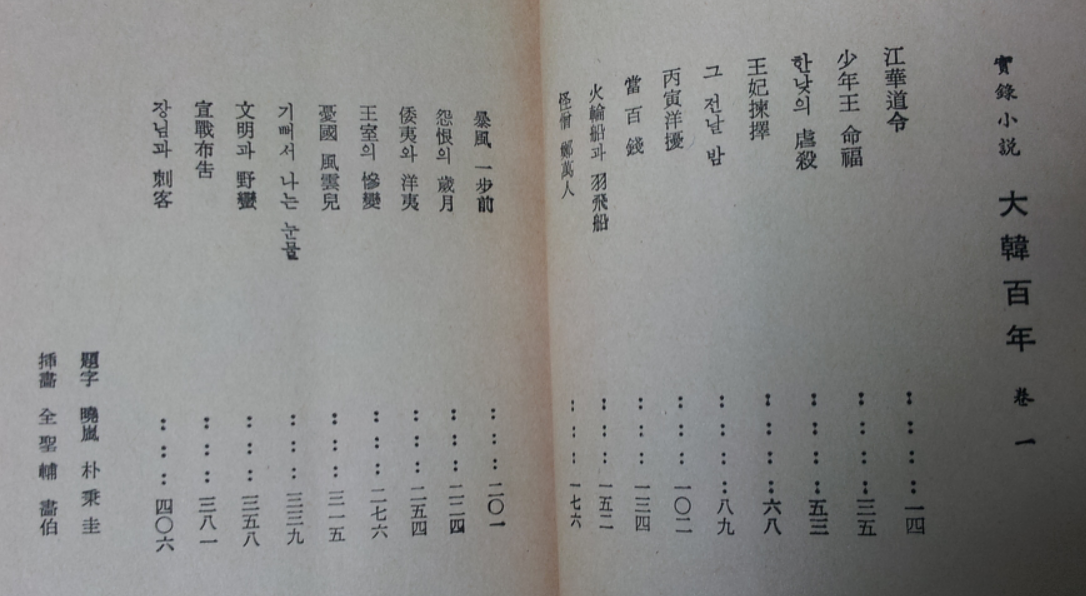 實錄小説 大韓百年 卷一
江華道令 ……… 一四
少年王 命福 ……… 三五
한낮의 虐殺 ……… 五三
王妃揀擇 ……… 六八
그 전날 밤 ……… 八九
丙寅洋擾 ……… 一〇二
當百錢 ……… 一三四
火輪船과 羽飛船 ……… 一五二
怪僧 鄭萬人 ……… 一七六
暴風 一步前 ……… 二〇一
怨恨의 歲月 ……… 二二四
倭夷와 洋夷 ……… 二五四
王室의 慘變 ……… 二七六
憂國 風雲兒 ……… 三一五
기뻐서 나는 눈물 ……… 三三九
文明과 野蠻 ……… 三五八
宣戰布告 ……… 三八一
장님과 刺客 ……… 四〇六
題字 曉嵐 朴秉圭
揷畵 全聖輔 畵伯